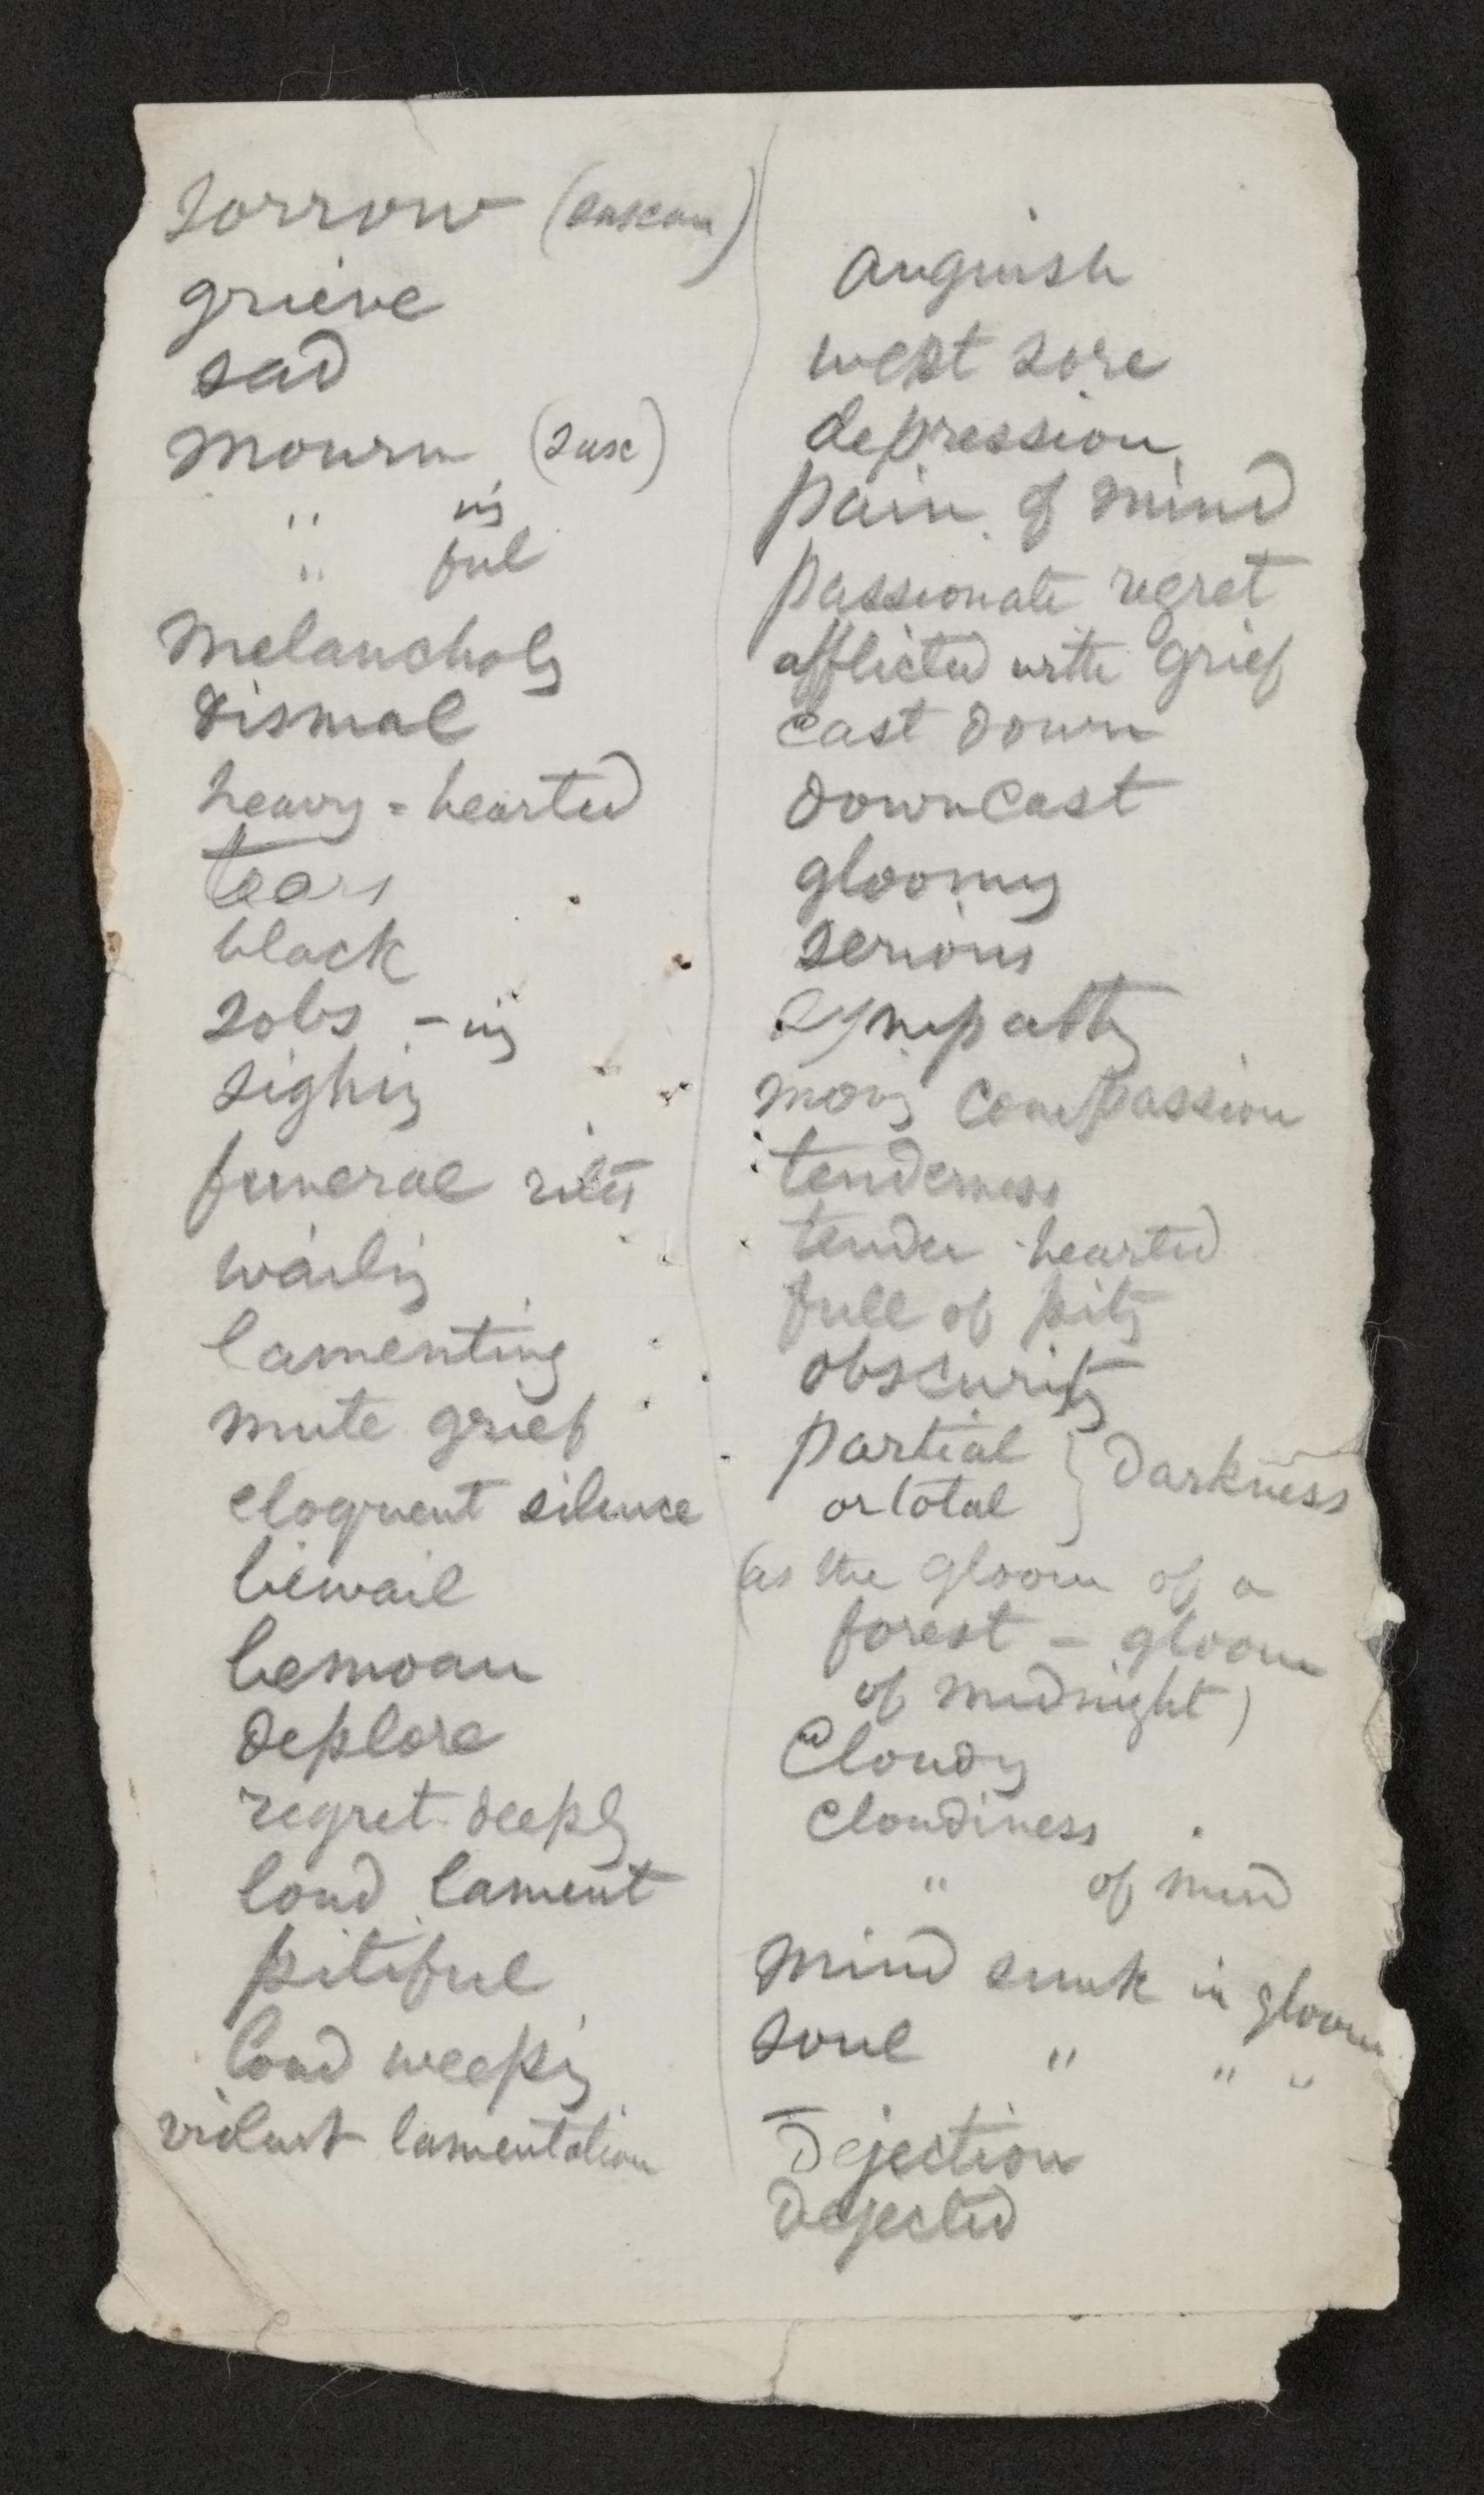 sorrow (saxon)
grieve
sad
mourn (sax)
" ing
" ful
melancholy
dismal
heavy-hearted
tears
black
sobs -ing
sighing
funeral rites
wailing
lamenting
mute grief
eloquent silence
bewail
bemoan
deplore
regret deeply
loud lament
pitiful
loud weeping
violent lamentation
anguish
wept sore
depression
pain of mind
passionate regret
afflicted with grief
cast down
downcast
gloomy
serious
sympathy
moving compassion
tenderness
tender hearted
full of pity
obscurity
partial
or total } darkness
(as the gloom of a
forest – gloom
of midnight)
Cloudy
cloudiness
" of mind
mind sunk in gloom
soul " " "
Dejection
dejected